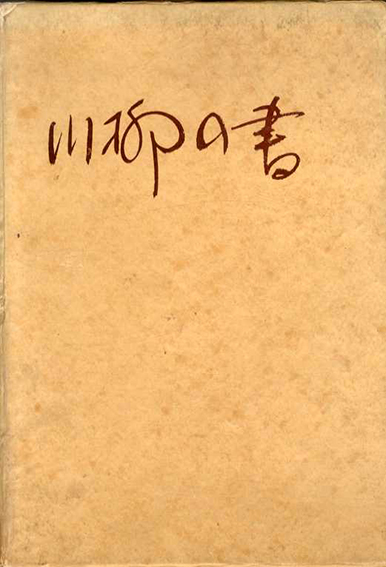 川柳の書